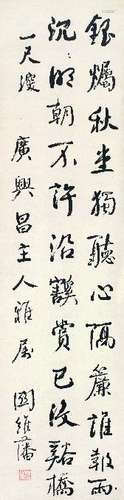 銀燭秋堂獨聽心隔簾誰報雨
沉沉明朝不許沿谿賞已沒谿橋
一尺深 廣興昌主人雅屬 維藩